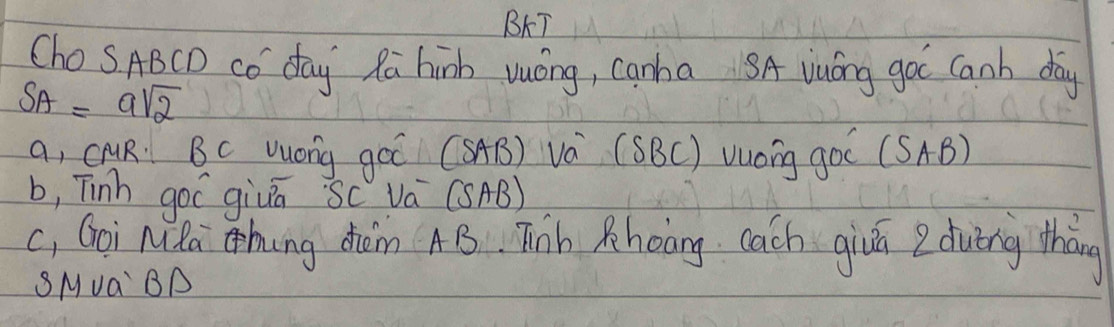 BKT
Cho S.ABCD có đáy là hình vuông, cạnh a SA vuông góc cạnh đáy
SA = a√2
a, CMR: BC vuông góc (SAB) và (SBC) vuông góc (SAB)
b, Tính góc giữa SC và (SAB)
c, Gọi M là trung điểm AB. Tính khoảng cách giữa 2 đường thẳng
SM và BD